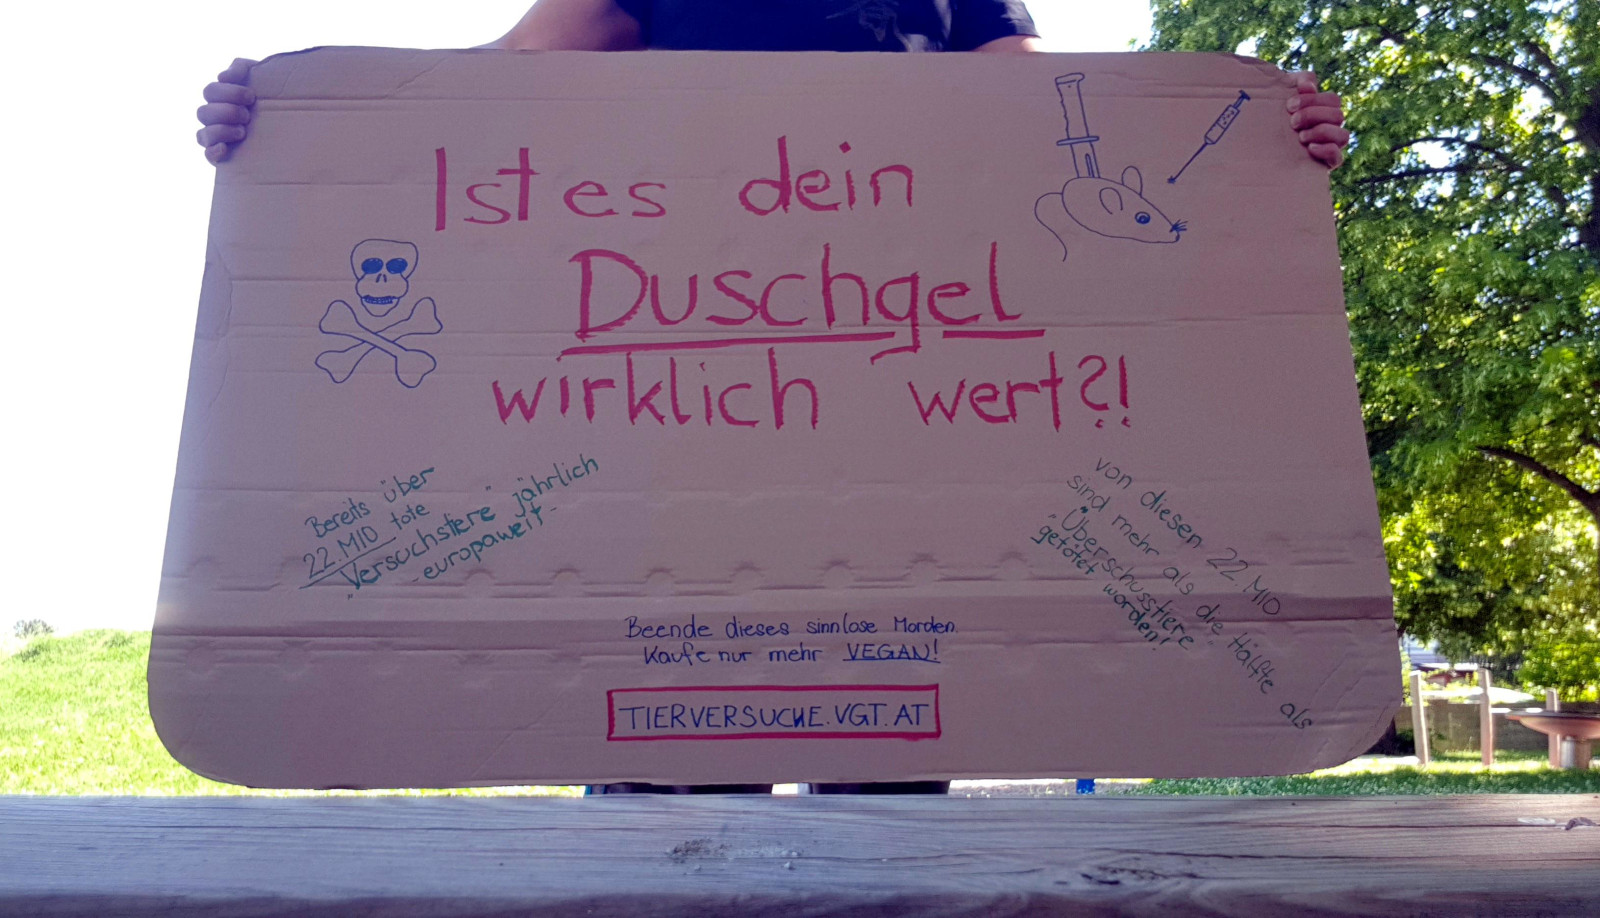 Ist es dein
Duschgel
wirklich wert?!
Bereits über
22.MIO tote
"Versuchstiere" jährlich
-europaweit-
von diesen 22 MIO
sind mehr als die Hälfte als
"Überschusstiere"
getötet worden!
Beende dieses sinnlose Morden.
Kaufe nur mehr VEGAN!
TIERVERSUCHE.VGT.AT